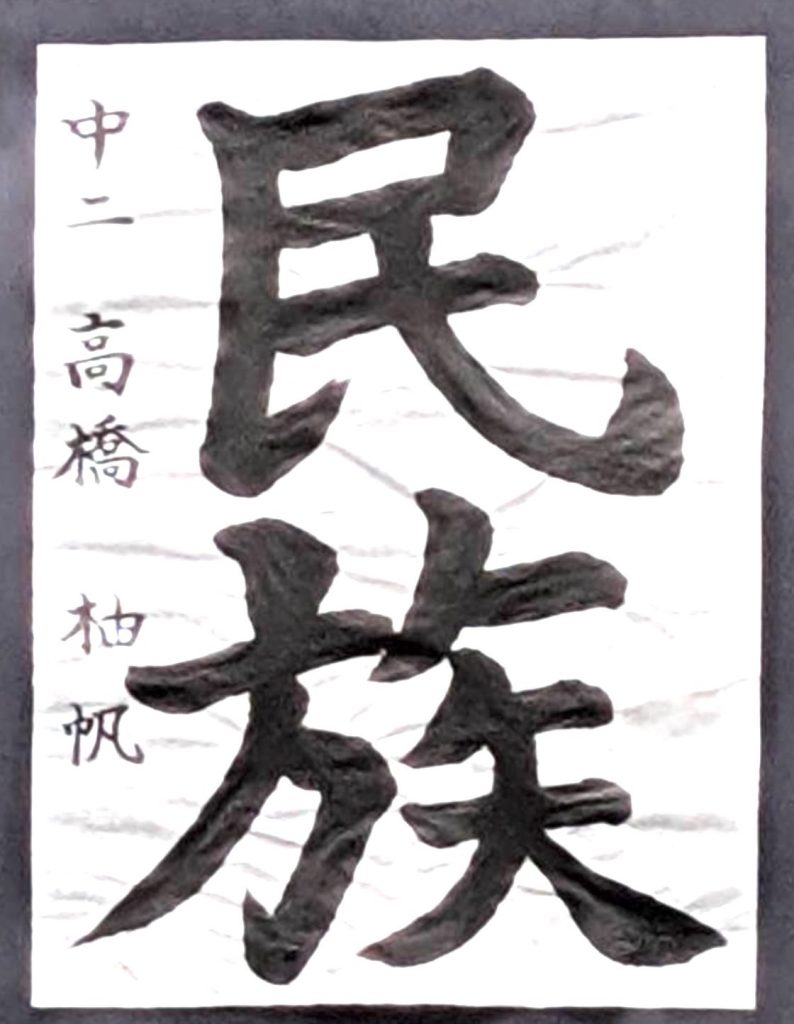 民族
中二 高橋 柚帆